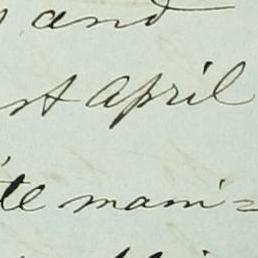 and
st April
te mani=